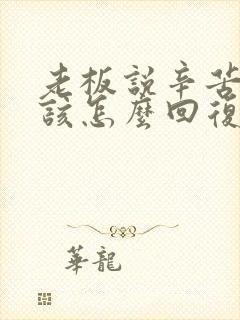 老板說辛苦
該怎麼回復
華龍